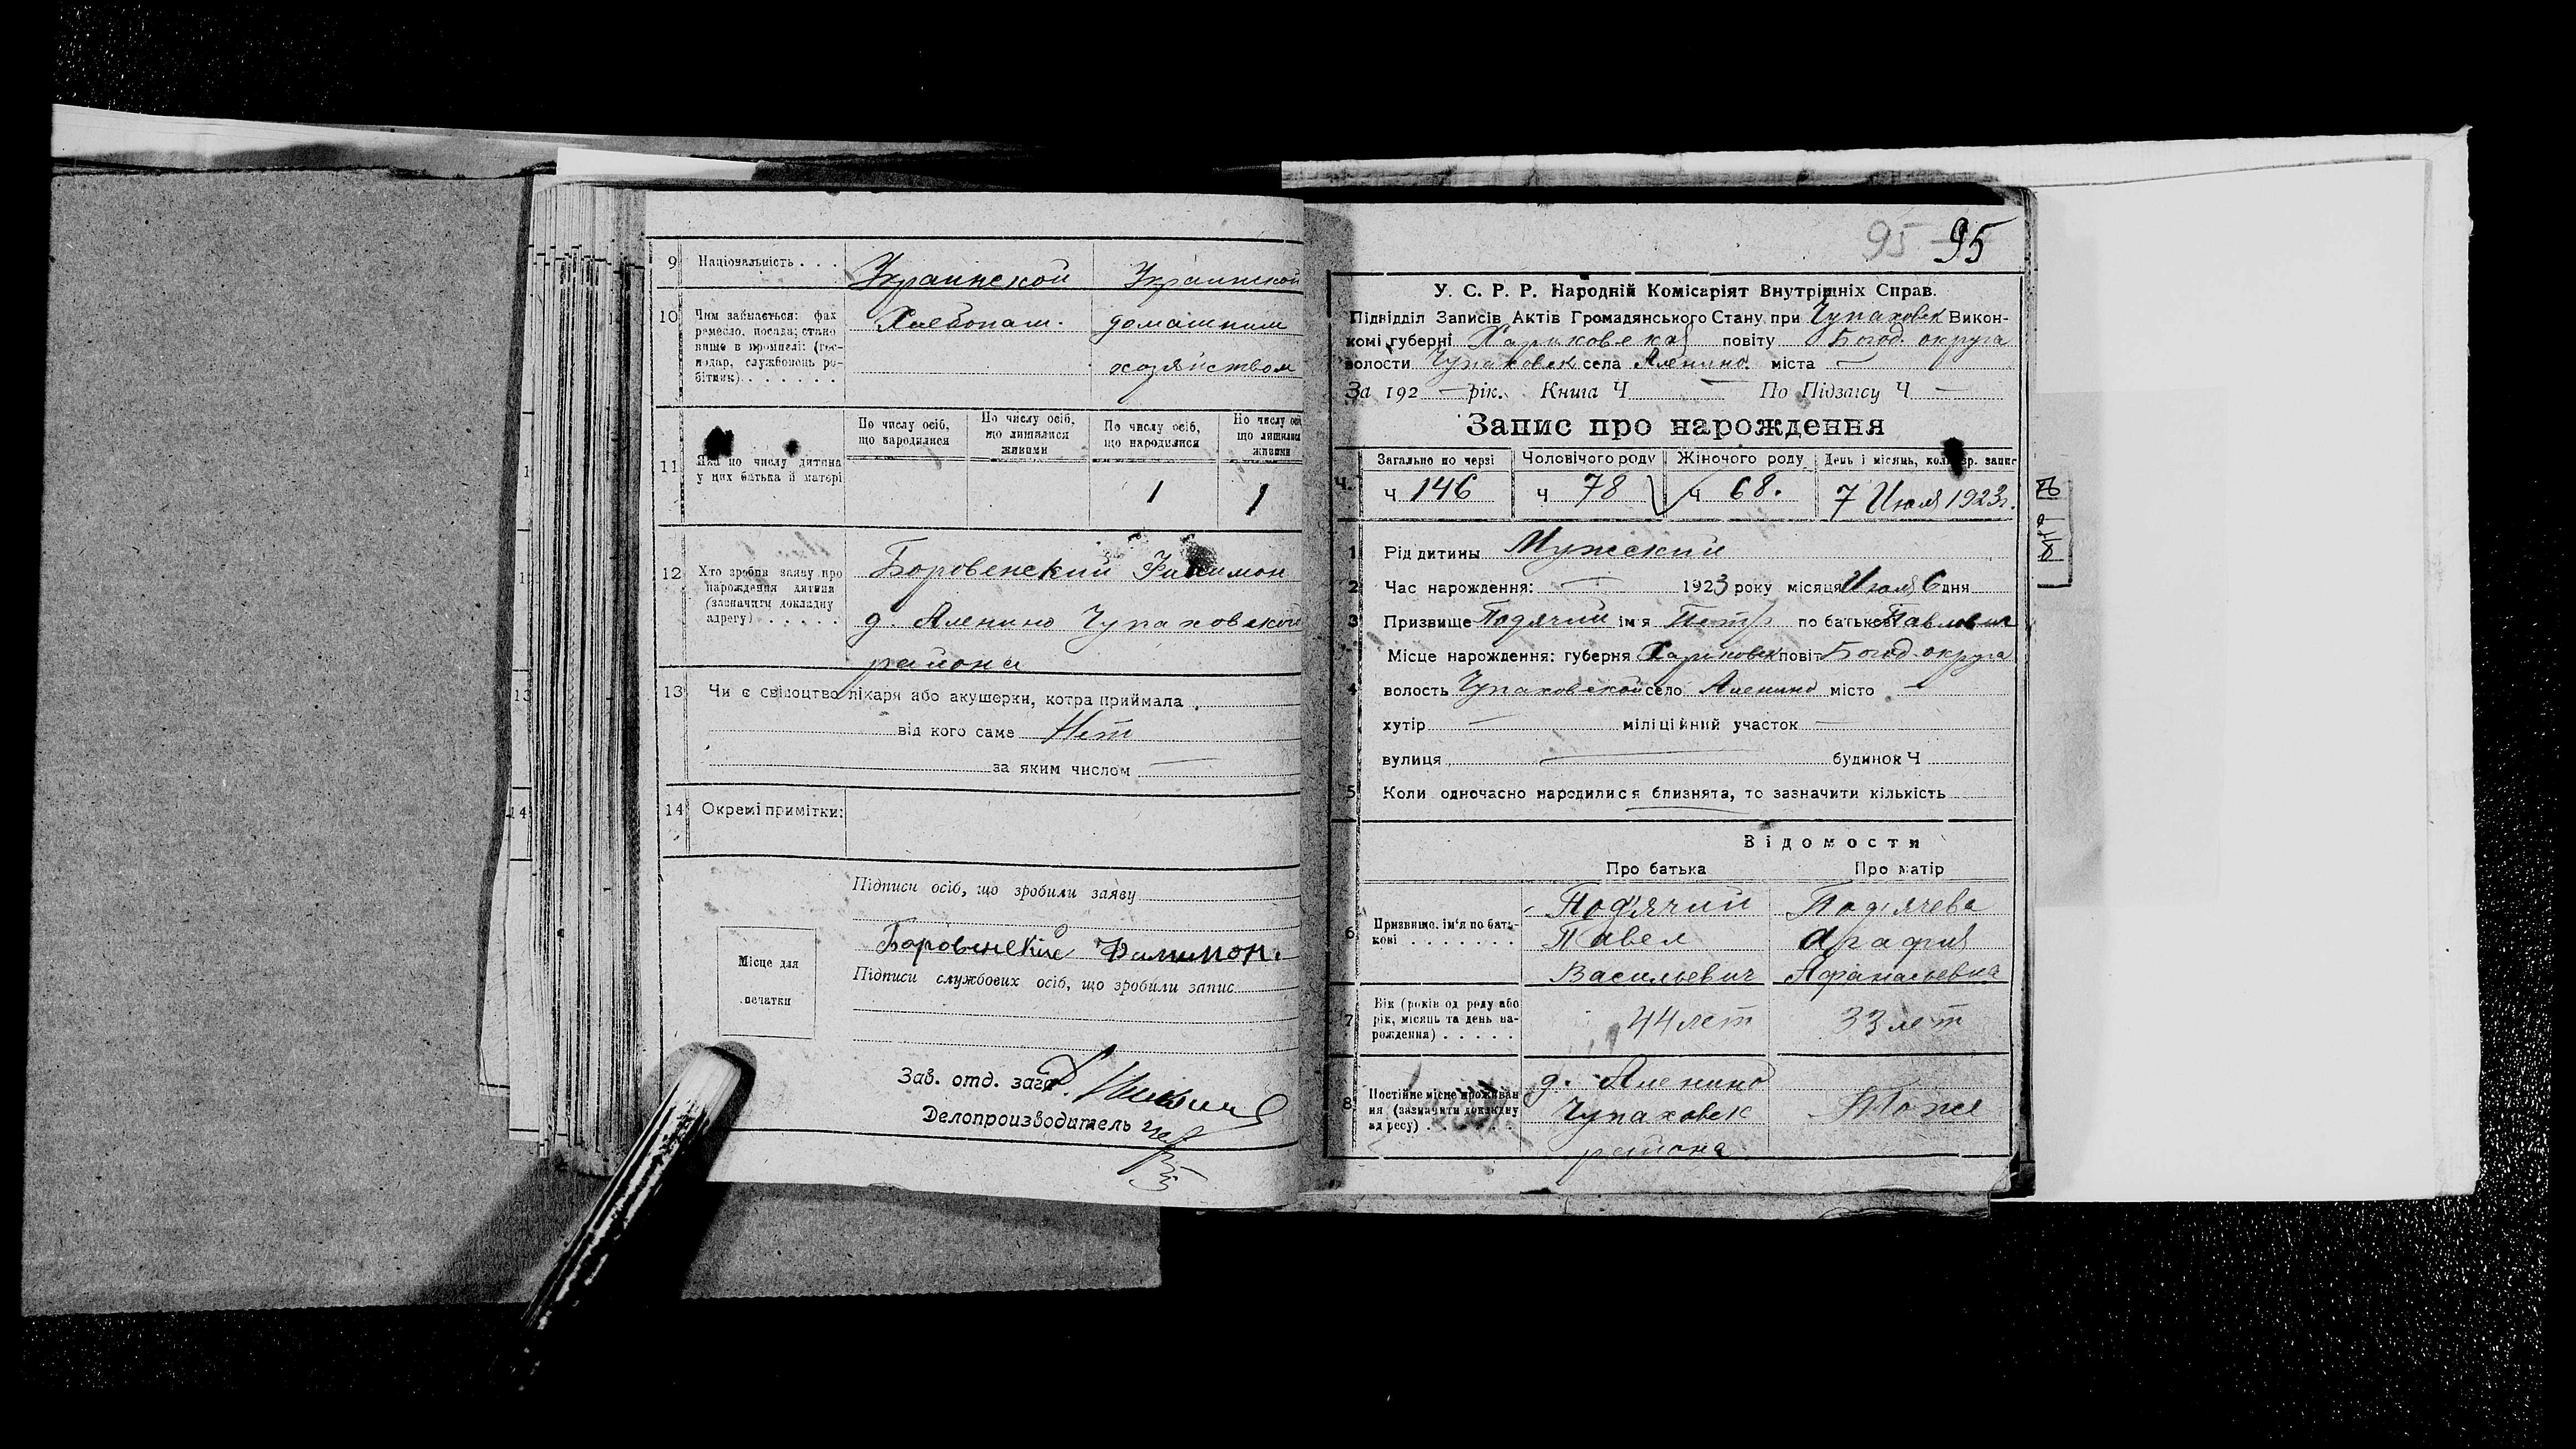 9 Національність . . . Украинской Украинской
10 Чим займається: фах Хлебопаш. домашним
ремесло, посада; стано
вище в промислі: (гос-
подар, службовець ро- хозяйством
бітник) . . . . . .
По числу осіб, що народилися По числу осіб, що лишилися живими По числу осіб, що народилися По числу осіб що лишилися живими
11 Яка по числу дитина
у цих батька й матері 1 1
12 Хто зробив заяву про Боровенский Филимон
нарождення дитини
(зазначити докладну
адресу) . . . . . д. Аленино Чупаховской
района
13 Чи є свідоцтво лікаря або акушерки, котра приймала
від кого саме Нет
за яким числом —
14 Окремі примітки:
Підписи осіб, що зробили заяву
Боровенский Филимон.
Місце для
печатки
Підписи службових осіб, що зробили запис
Зав. отд. загс
Делопроизводитель
95 95
У. С. Р. Р. Народній Комісаріят Внутрішніх Справ.
Підвідділ Записів Актів Громадянського Стану при Чупаховск Викон-
комі губерні Харьковской повіту Богод. округа
волости Чупаховск села Аленино міста —
За 192 — рік. Книга Ч — По Підпису Ч —
Запис про нарождення
Загально по черзі Чоловічого роду Жіночого роду День і місяць, коли зр. запис
Ч. ч 146 ч 78 ч 68. 7 Июля 1923г.
1 Рід дитины Мужский
2 Час нарождення: — 1923 року місяця Июля 6 дня
3 Призвище Подячий ім'я Петр по батькові Павлович
Місце нарождення: губерня Харьковск повіт Богод. округа
4 волость Чупаховской село Аленино місто —
хутір — міліційний участок —
вулиця — будинок Ч
5 Коли одночасно народилися близнята, то зазначити кількість
Відомости
Про батька Про матір
6 Призвище, ім'я по бать-
кові . . . . . . .
Под'ячий Под'ячева
Павел Агафия
Васильевич Афанасьевна
7 Вік (років од роду або
рік, місяць та день на-
рождення) . . . . . 44 лет 33 лет
8 Постійне місце прожіван
ня (зазначити докладну
адресу) . . . . . .
д. Аленино
Чупаховск Тоже
района